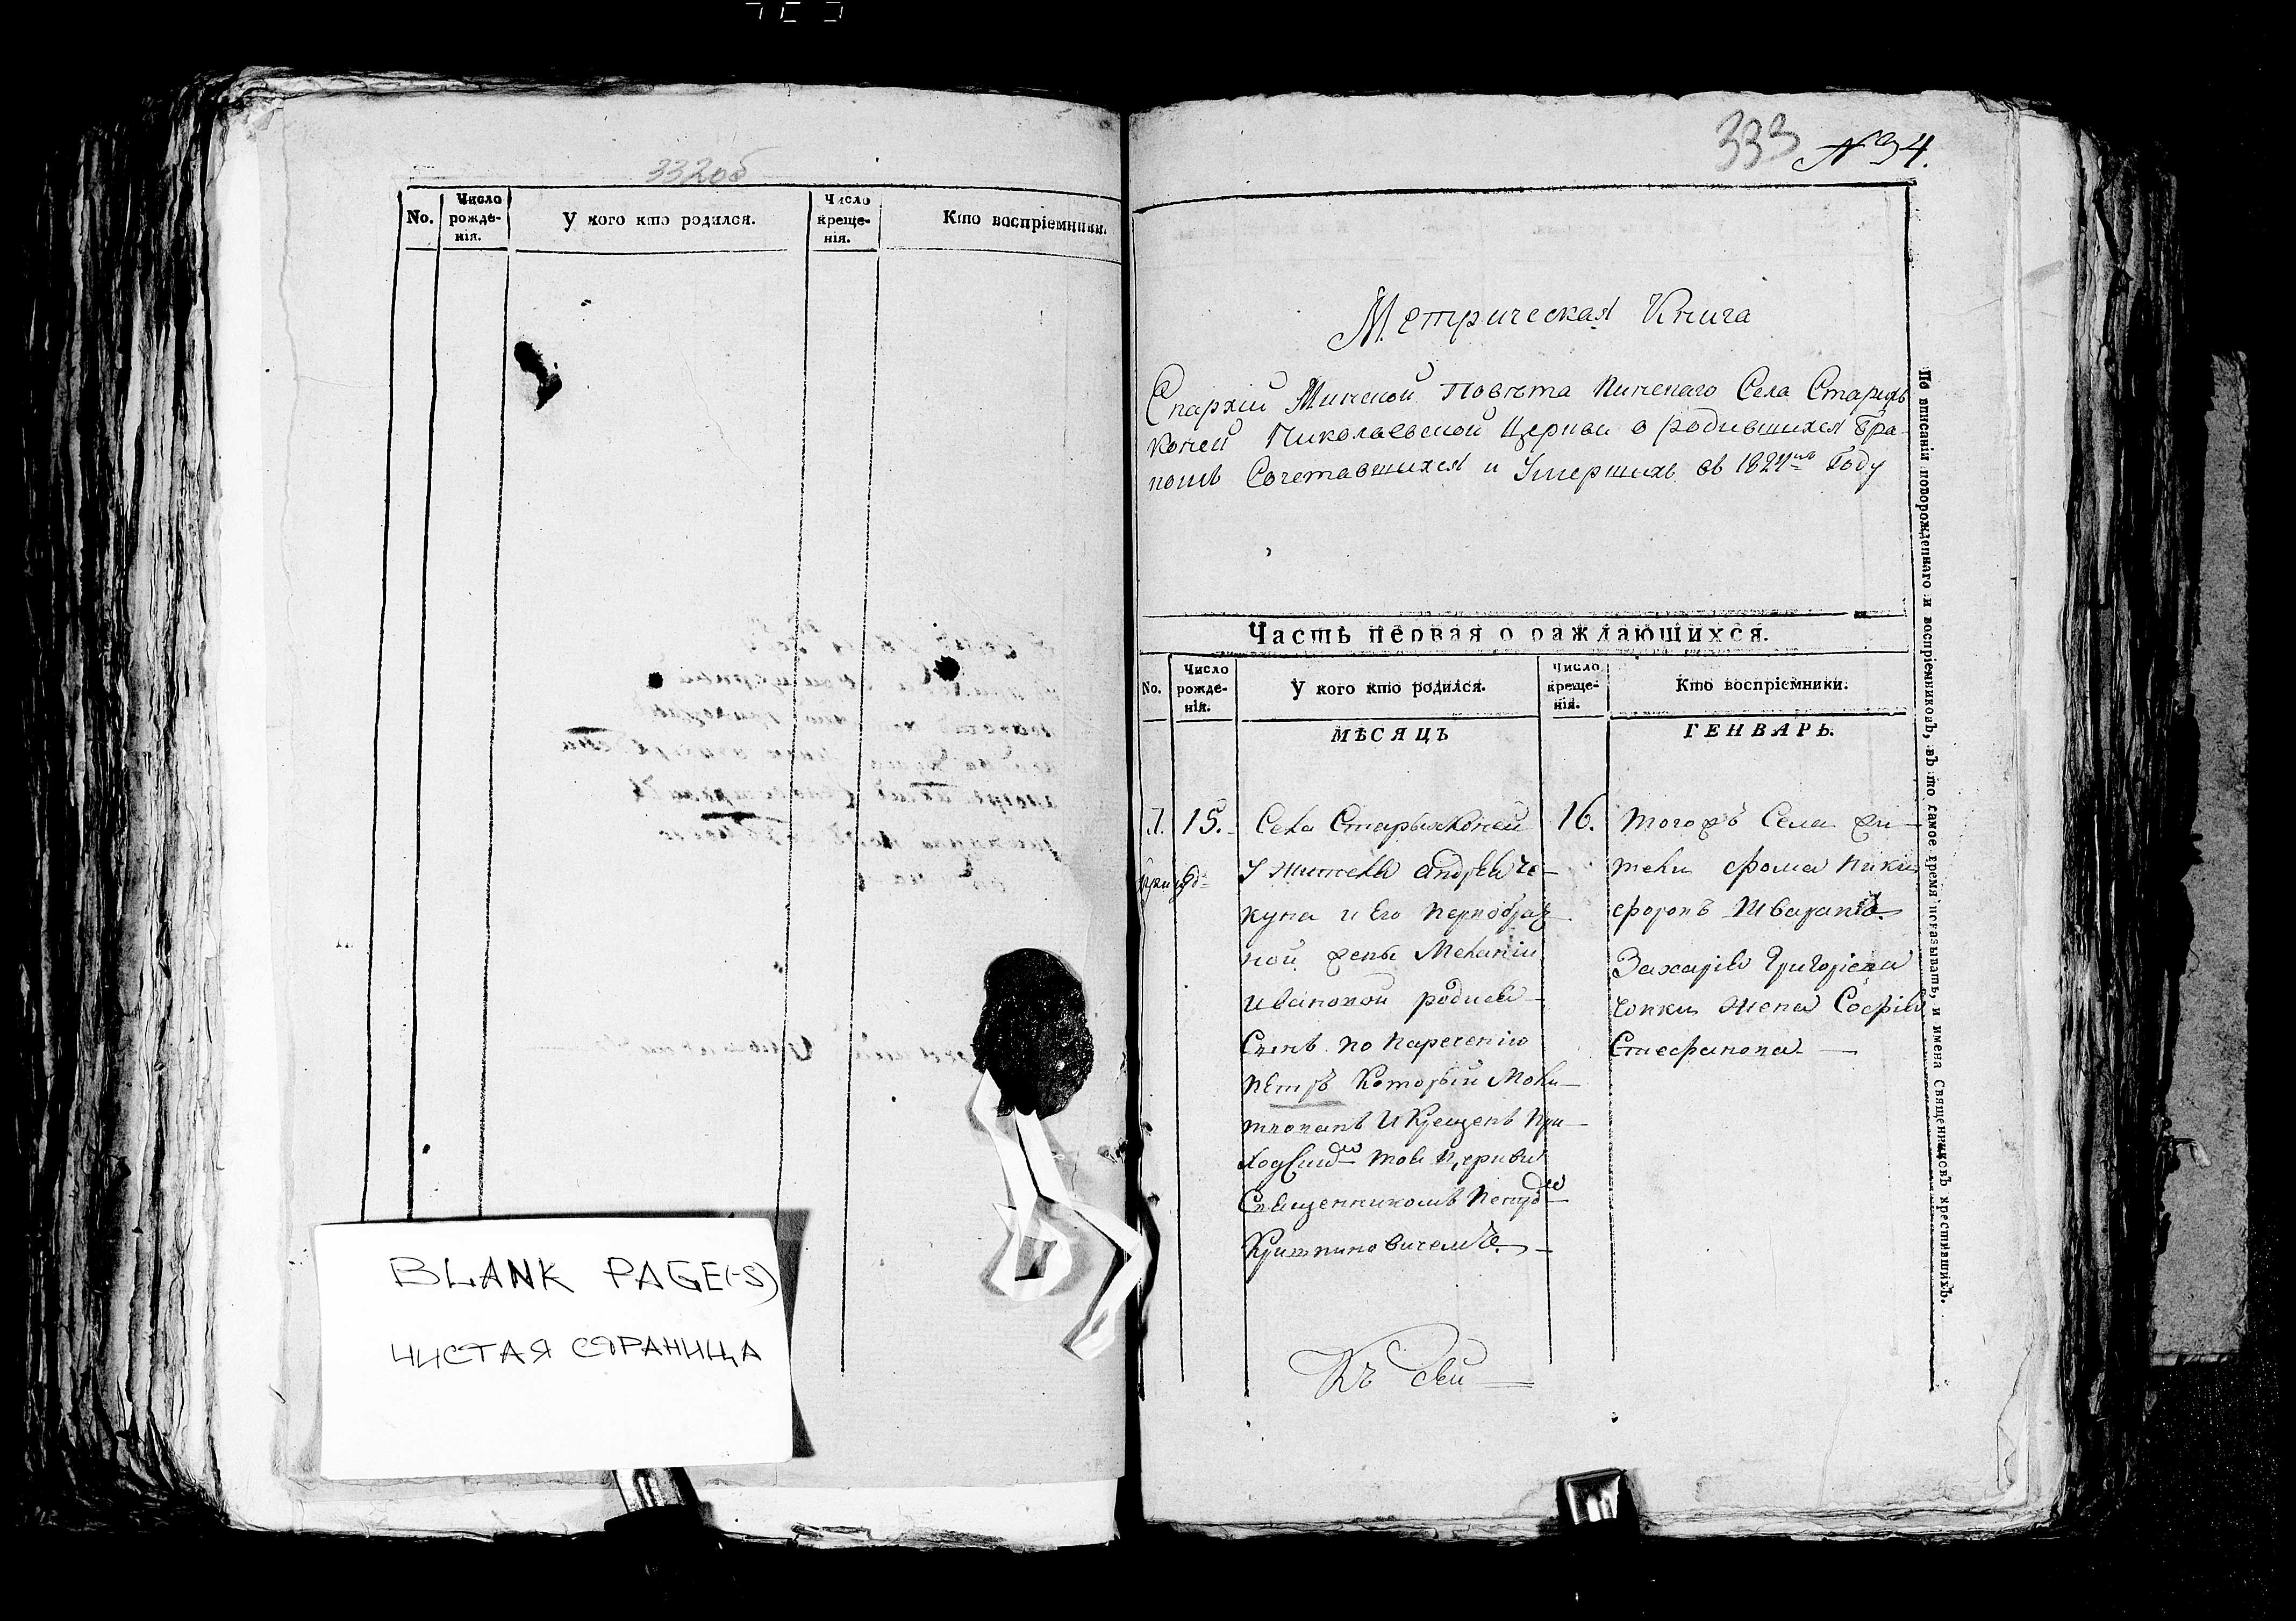 332об
No.
Число рожде-нія.
У кого кто родился.
Число креще-нія.
Кто воспріемники.
BLANK PAGE(-S)
ЧИСТАЯ СТРАНИЦА
333 № 34.
Метрическая Книга
Епархіи Минской Повѣта Пинскаго Села Старых
коней Николаевской Церкви о родившихся Бра
комъ Сочетавшихся и Умершихъ въ 1824мъ Году
Часть первая о раждающихся.
No.
Число рожде-нія.
У кого кто родился.
Число креще-нія.
Кто воспріемники.
МѢСЯЦЪ
ГЕНВАРЬ.
1. 15.
Села Старыхконей
У жителя Андрея Че-
куна и Его
ной жены Меланіи
Ивановой родися
Сынъ по Наречению
Петръ Который Моли-
твованъ И Крещенъ При
той Церкви
Священникомъ
16.
Тогожъ Села жи-
тели Фома Ники
форовъ
Захарія Григоріева
жена Софія
Стефанова
По вписаніи новорожденнаго и воспріемниковъ, въ то самое время показывать, и имена Священниковъ крестившихъ.